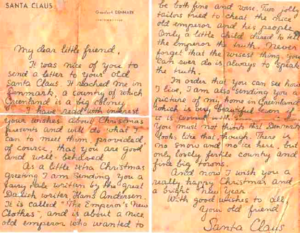 SANTA CLAUS
My dear little friend,
It was nice of you to
send a letter to your old
Santa. It reached me in
Denmark, a country of which
Greenland is a big colony.
your wishes about Christmas
and will do what I
can to meet them provided,
of course, that you are good
and well-behaved.
As a little Christmas
greeting I am sending you a
fairy tale written by the great
Danish writer Hans Andersen.
It is called "The Emperor's New
Clothes", and is about a nice
old emperor who wanted to
be both fine and Two
tailors tried to cheat the nice
old emperor and his people.
Only a little child dared to tell
the emperor the truth. Never
forget that the wisest thing you
can ever do is always to speak
the truth.
In order that you can see how
I live, I am also sending you a
picture of my home in Greenland,
You must not think that Denmark
looks like that, though. There is
no snow and no ice here, but
only lovely fertile country and
fine big towns.
And now I wish you a
really happy Christmas and
a New Year.
With good wishes to all,
Your old friend,
Santa Claus